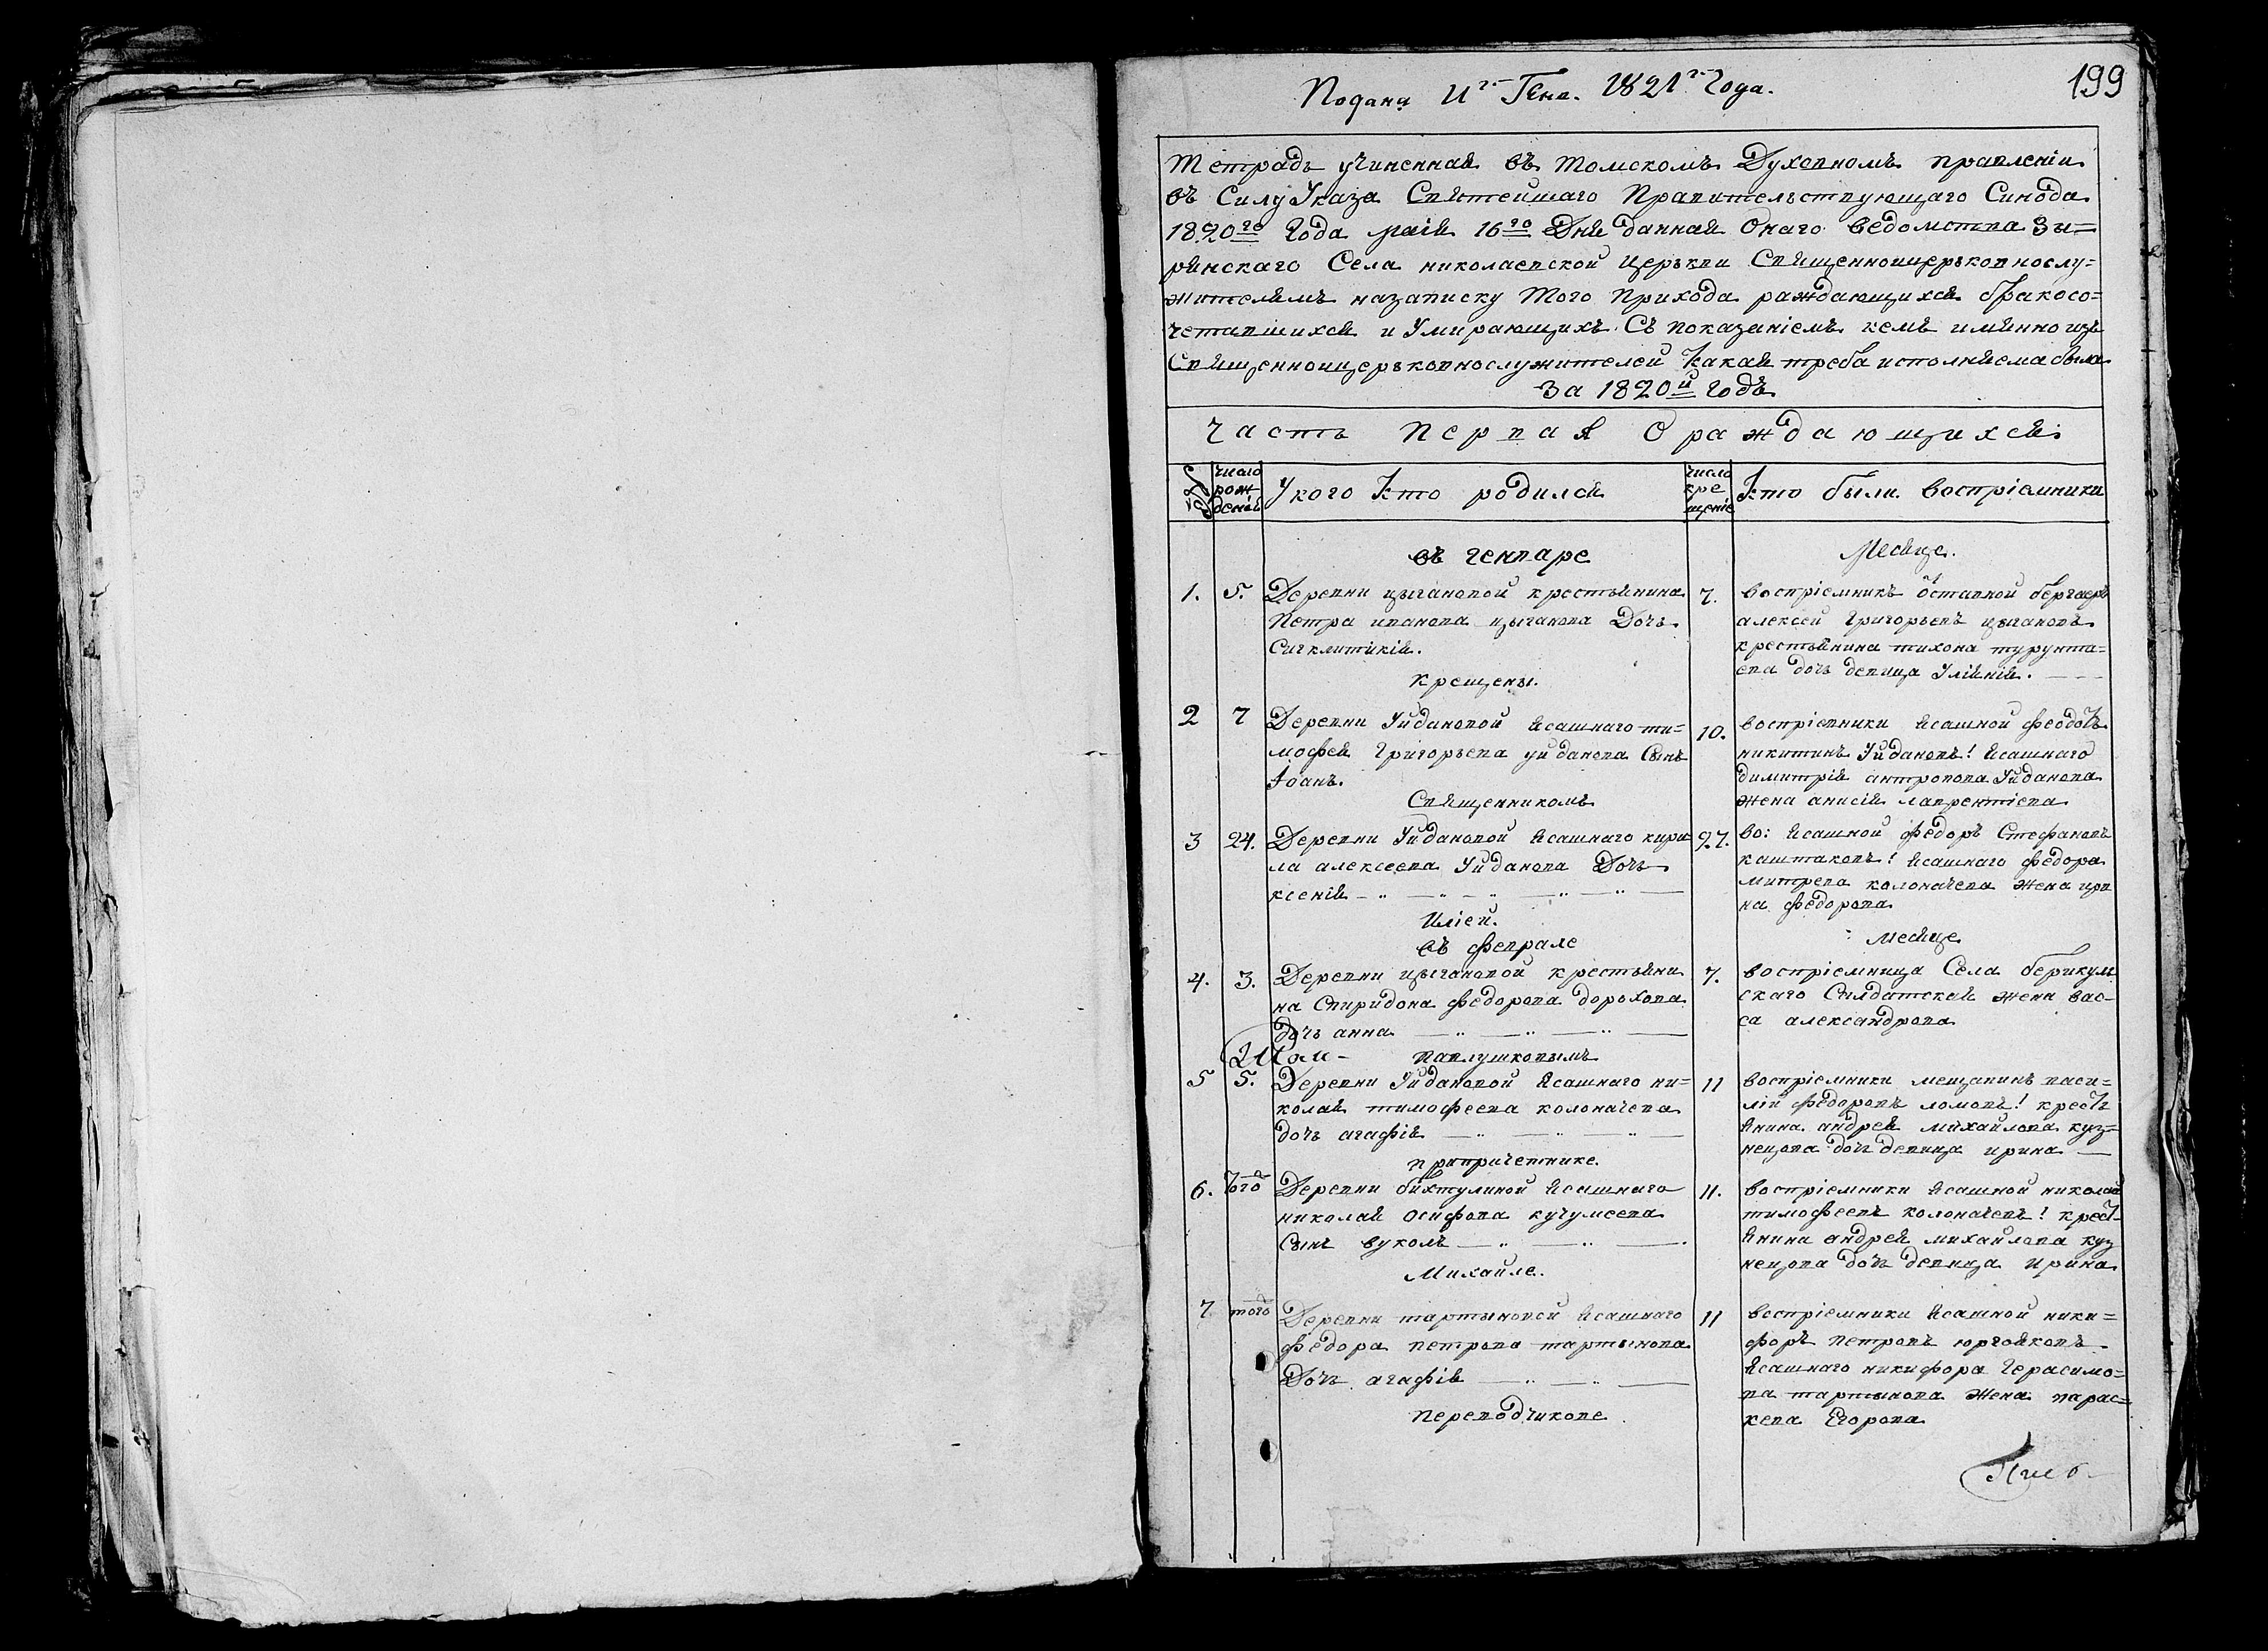 Подана И го Генв. 1821 го Года.
199
Тетрадь учиненная въ томскомъ Духовномъ правленіи
въ Силу Указа Святейшаго Правительствующаго Синода
1820го Года маія 16го Дня данная Онаго ведомства Зы=
рянскаго Села николаевской церькви Священноцерьковнослу=
жителямъ назаписку Того прихода раждающихся бракосо=
четавшихся и Умирающихъ Съ показаніемъ кемъ имянно изъ
Священноцерьковнослужителей какая треба исполняема была
За 1820й Годъ
Часть первая О раждающихся
число рождений
Укого кто родился
число крещеніе
кто были воспріемники
въ генваре
Месяце.
1. 5. Деревни цыгановой крестьянина
Петра иванова цыганова Дочь
Сигклитикія.
крещены.
7. воспріемникъ отставной
алексей Григорьевъ цыгановъ
крестьянина тихона турунта=
ева дочь девица Уліянія.
2 7 Деревни Уйдановой Ясашнаго ти=
мофея Григорьева уйданова Сынъ
Іоанъ.
Священникомъ
10. воспріемники Ясашной феодотъ
никитинъ Уйдановъ! Ясашнаго
димитрія антропова Уйданова
жена анисія лаврентіева
3 24. Деревни Уйдановой Ясашнаго кири
ла алексеева Уйданова Дочь
ксенія
Иліей.
27. во: Ясашной федоръ Стефановъ
каштаковъ! Ясашнаго федора
митрева колоначева жена ири
на федорова
въ феврале
месяце
4. 3. Деревни цыгановой крестьяни
на Спиридона федорова дорохова
дочь анна
Павлушковымъ
7. воспріемница Села берикуль
скаго Салдатская жена вас-
са александрова
5 5. Деревни Уйдановой Ясашнаго ни=
колая тимофеева колоначева
дочь агафія
припричетнике.
11 воспріемники мещанинъ васи=
лій федоровъ ломовъ! крестъ
янина андрея михайлова куз=
нецова дочь девица ирина
6. того Деревни бихтулиной Ясашнаго
николая осифова кучумеева
Сынъ вуколъ
Михайле.
11. воспріемники Ясашной николай
тимофеевъ колоначевъ! крест-
янина андрея михайлова куз
нецова дочь девица Ирина
7 того Деревни тартыновой Ясашнаго
федора петрова тартынова
Дочь агафія
Переводчикове
11 воспріемники Ясашной ники=
форъ петровъ юргояковъ
Ясашнаго никифора Герасимо=
ва тартынова жена парас=
кева Егорова